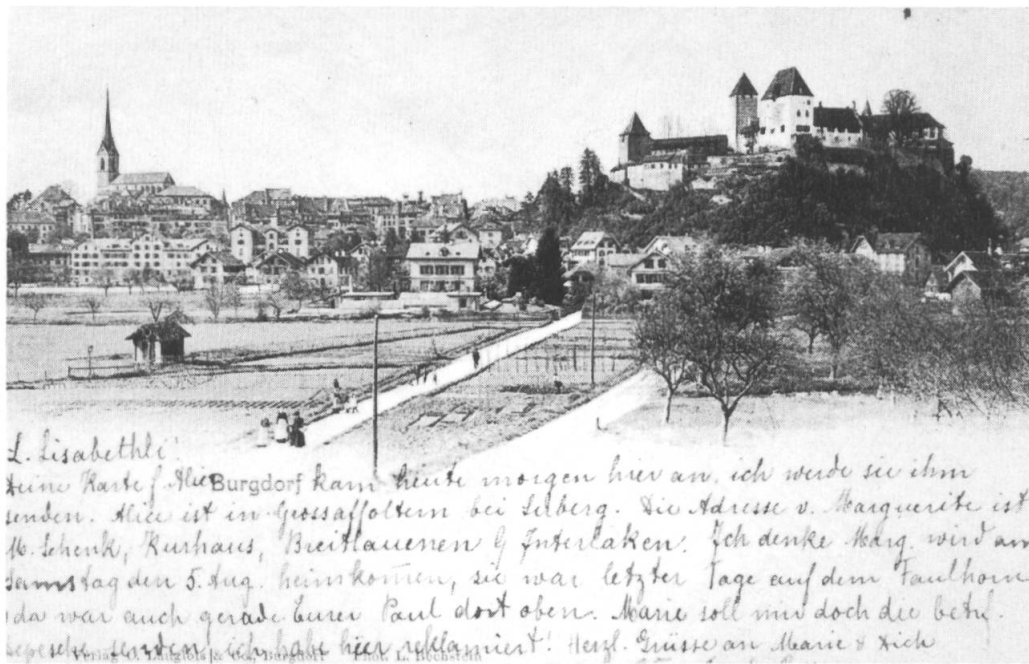 L. Lisabethli!
Deine Karte f. Alice Burgdorf kam heute morgen hier an, ich werde sie ihm
senden. Alice ist in Grossaffoltern bei Suberg. Die Adresse v. Marguerite ist
M. Schenk, Kurhaus, Breitlauenen b/ Interlaken. Ich denke Marg. wird am
Samstag den 5. Aug. heimkom̄en, sie war letzter Tage auf dem Faulhorn
da war auch gerade Eurer Paul dort oben. Marie soll mir doch die betrf.
Depesche senden, ich habe hier reklamiert! Herzl. Grüsse an Marie & Dich
Verlag O. Langlois & Co., Burgdorf Phot. L. Bechstein